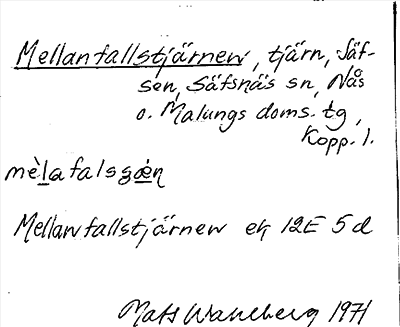 Mellanfallstjärnen, tjärn, Säf-
sen, Säfsnäs sn, Nås
o. Malungs doms. tg,
Kopp. l.
Mellanfallstjärnen ek 12E 5d
Mats Wahlberg 1971